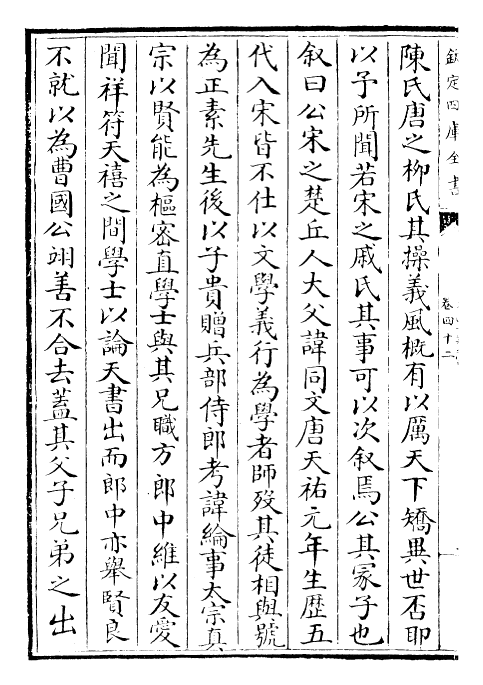 欽定四庫全書
卷四十二
陳氏唐之柳氏其操義風概有以厲天下矯異世否耶
以予所聞若宋之戚氏其事可以次叙焉公其冢子也
叙曰公宋之楚丘人大父諱同文唐天祐元年生歴五
代入宋皆不仕以文學義行為學者師殁其徒相與號
為正素先生後以子貴贈兵部侍郎考諱綸事太宗真
宗以賢能為樞宻直學士與其兄職方郎中維以友愛
聞祥符天禧之間學士以論天書出而郎中亦舉賢良
不就以為曹國公翊善不合去蓋其父子兄弟之出